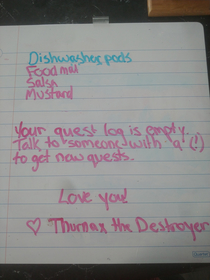 Dishwasher pods
Food mill
Salsa
Mustard
Your quest log is empty.
Talk to someone with "a" (!)
to get new quests.
Love you!
♡ Thurnax the Destroyer